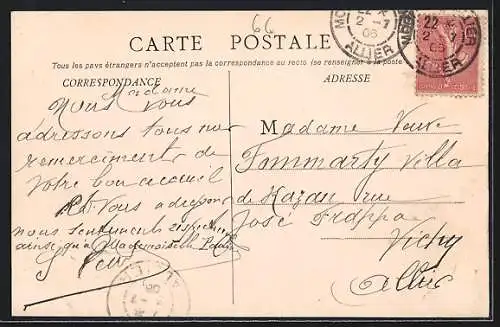 66
CARTE POSTALE
Tous les pays étrangers n'acceptent pas la correspondance au recto (se renseigner à la poste)
CORRESPONDANCE
ADRESSE
22
2 -7
06
ALLIER
22
2 -7
06
ALLIER
Madame
Nous vous
adressons tous nos
remerciments de
votre bon accueil
et vous adressons
nous sentiments respect
ainsi qu'a Mademoiselle
Madame Veuve
Tommarty Villa
de Kazan rue
José Frappa
Vichy
Allier